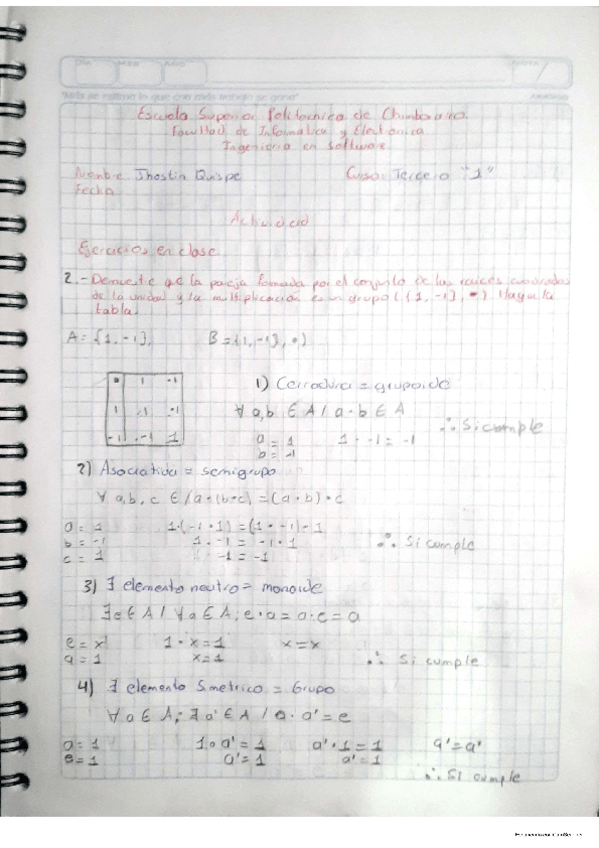 Escuela Superior Politecnica de Chimborazo
Facultad de Informatica y Electronica
Ingenieria en Software
Nombre Jhostin Quispe Curso: Tercero "1"
Fecha
Actividad
Ejercicios en clase
2.- Demuestre que la pareja formada por el conjunto de las raices cuadradas
de la unidad y la multiplicación es un grupo ({1, -1}, •) Haya la
tabla.
A = {1, -1}, B = {1, -1}, •)
• 1 -1
1 1 -1
-1 -1 1
1) Cerradura = grupoide
∀ a,b ∈ A / a • b ∈ A
a = 1 1 • -1 = -1
b = -1
∴ Si cumple
2) Asociativa = semigrupo
∀ a,b,c ∈ / a • (b • c) = (a • b) • c
a = 1 1•(-1 • 1) = (1 • -1) • 1
b = -1 1 • -1 = -1 • 1 ∴ Si cumple
c = 1 -1 = -1
3) ∃ elemento neutro = monoide
∃ e ∈ A / ∀ a ∈ A; e • a = a • e = a
e = x 1 • x = 1 x = x
a = 1 x = 1 ∴ Si cumple
4) ∃ elemento Simetrico = Grupo
∀ a ∈ A; ∃ a' ∈ A / a • a' = e
a = 1 1 • a' = 1 a' • 1 = 1 a' = a'
e = 1 a' = 1 a' = 1
∴ Si cumple